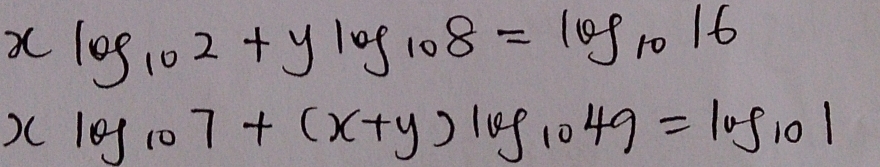 x log₁₀2 + y log₁₀8 = log₁₀16
x log₁₀7 + (x+y) log₁₀49 = log₁₀1